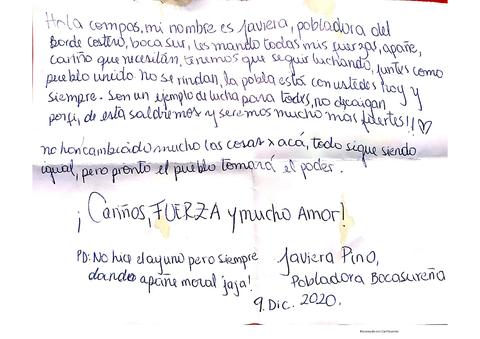 Hola compas, mi nombre es Javiera, pobladora del
Borde costero, boca sur, les mando todas mis fuerzas, apañe,
cariño que necesitan, tenemos que seguir luchando, juntes como
pueblo unido no se rindan, la pobla está con ustedes hoy y
siempre. Son un ejemplo de lucha para todxs, no decaigan
porfi, de esta saldremos y seremos mucho mas fuertes!! ♡
no han cambiado mucho las cosas x acá, todo sigue siendo
igual, pero pronto el pueblo tomará el poder.
¡Cariños, FUERZA y mucho Amor!
PD: No hice el ayuno pero siempre
dando apañe moral jaja!
Javiera Pino,
Pobladora Bocasureña
9. Dic. 2020.